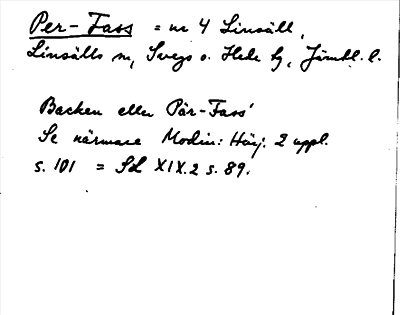 Per-Fass = nr 4 Linsäll,
Linsälls sn, Svegs o. Hede tg, Jämtl. l.
Backen eller Pär-Fass'
Se närmare Modin: Härj. 2 uppl.
s. 101 = SvL XIX.2 s. 89.